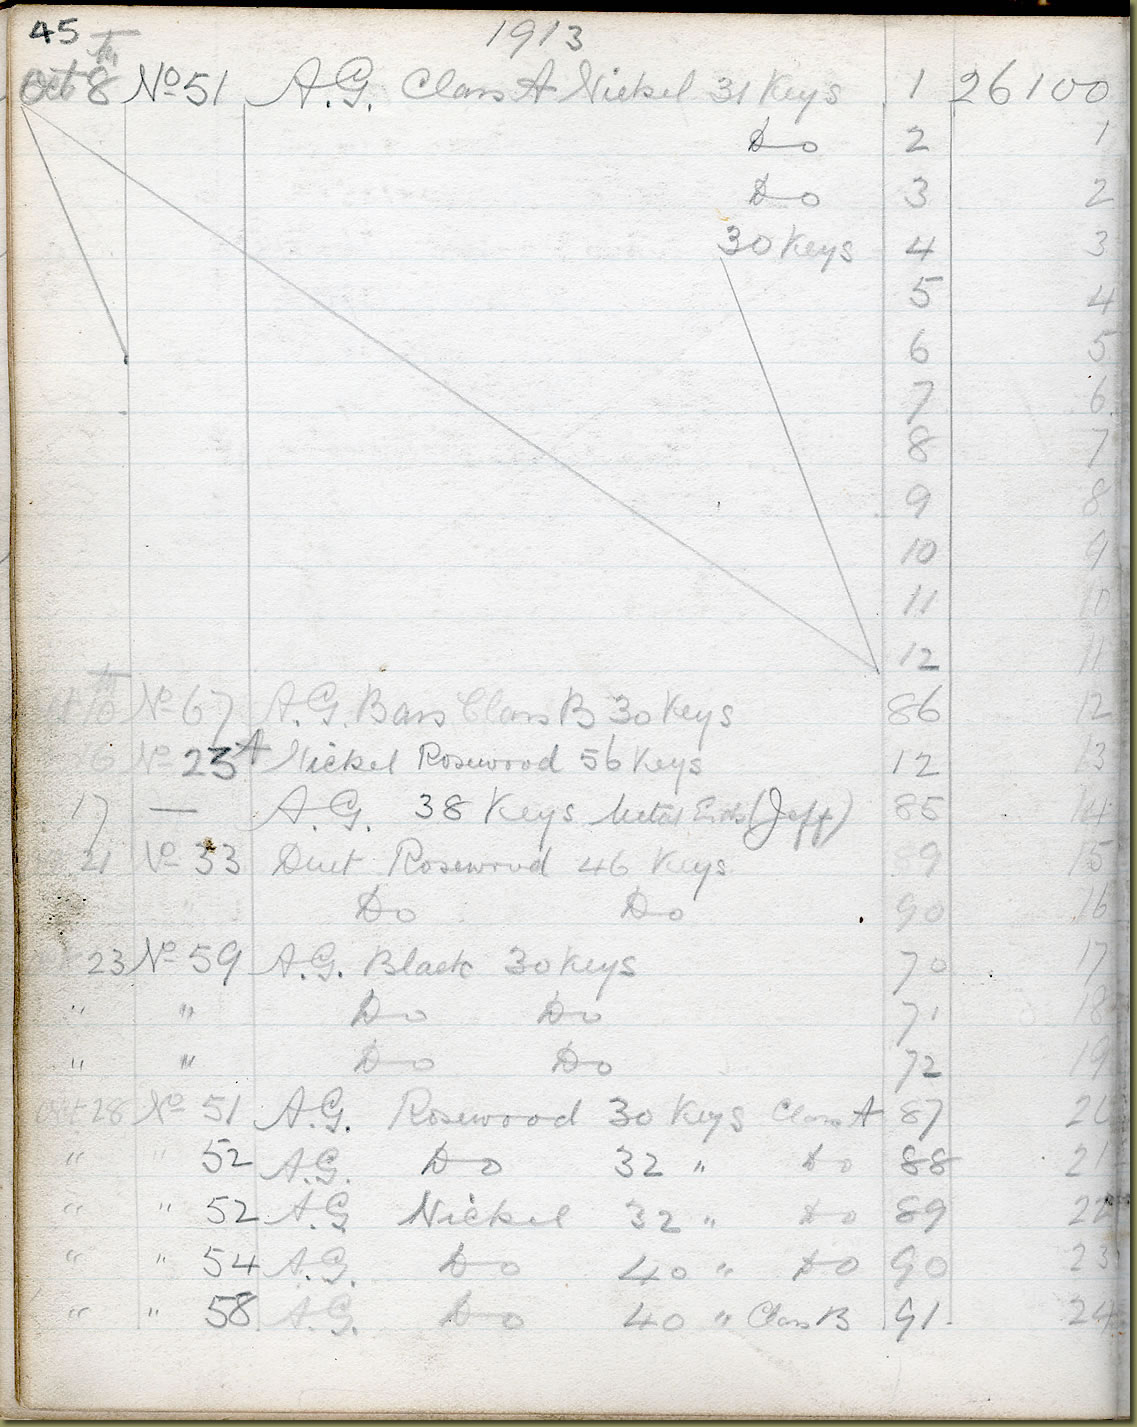 45 1913
Oct 8th No 51 A.G. Class A Nickel 31 Keys 1 26100
Do 2 1
Do 3 2
30 Keys 4 3
5 4
6 5
7 6
8 7
9 8
10 9
11 10
12 11
10th No 67 A.G. Bass Class B 30 Keys 86 12
No 23A Nickel Rosewood 56 Keys 12 13
17 — A.G. 38 Keys Metal Ends (Jeff) 85 14
21 No 33 Duet Rosewood 46 Keys 9 15
Do Do 90 16
23 No 59 A.G. Black 30 Keys 70 17
" " Do Do 71 18
" " Do Do 72 19
Oct 28 No 51 A.G. Rosewood 30 Keys Class A 87 20
" " 52 A.G. Do 32 " Do 88 21
" " 52 A.G. Nickel 32 " Do 89 22
" " 54 A.G. Do 40 " Do 90 23
" " 58 A.G. Do 40 " Class B 91 24